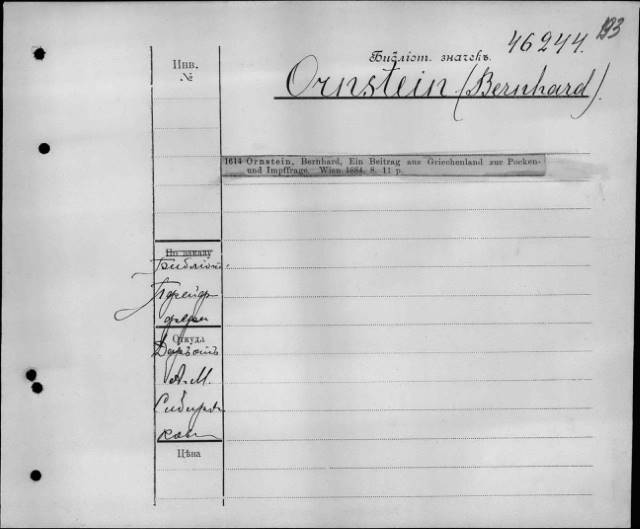 46244. 193
Библіот. значекъ.
Инв.
№
Ornstein (Bernhard).
1614 Ornstein, Bernhard, Ein Beitrag aus Griechenland zur Pocken-
und Impffrage. Wien 1884. 8. 11 p.
По заказу
Библіот.
Пфейф-
фера
Откуда
Даръ отъ
А. М.
Сибиря-
кова
Цѣна